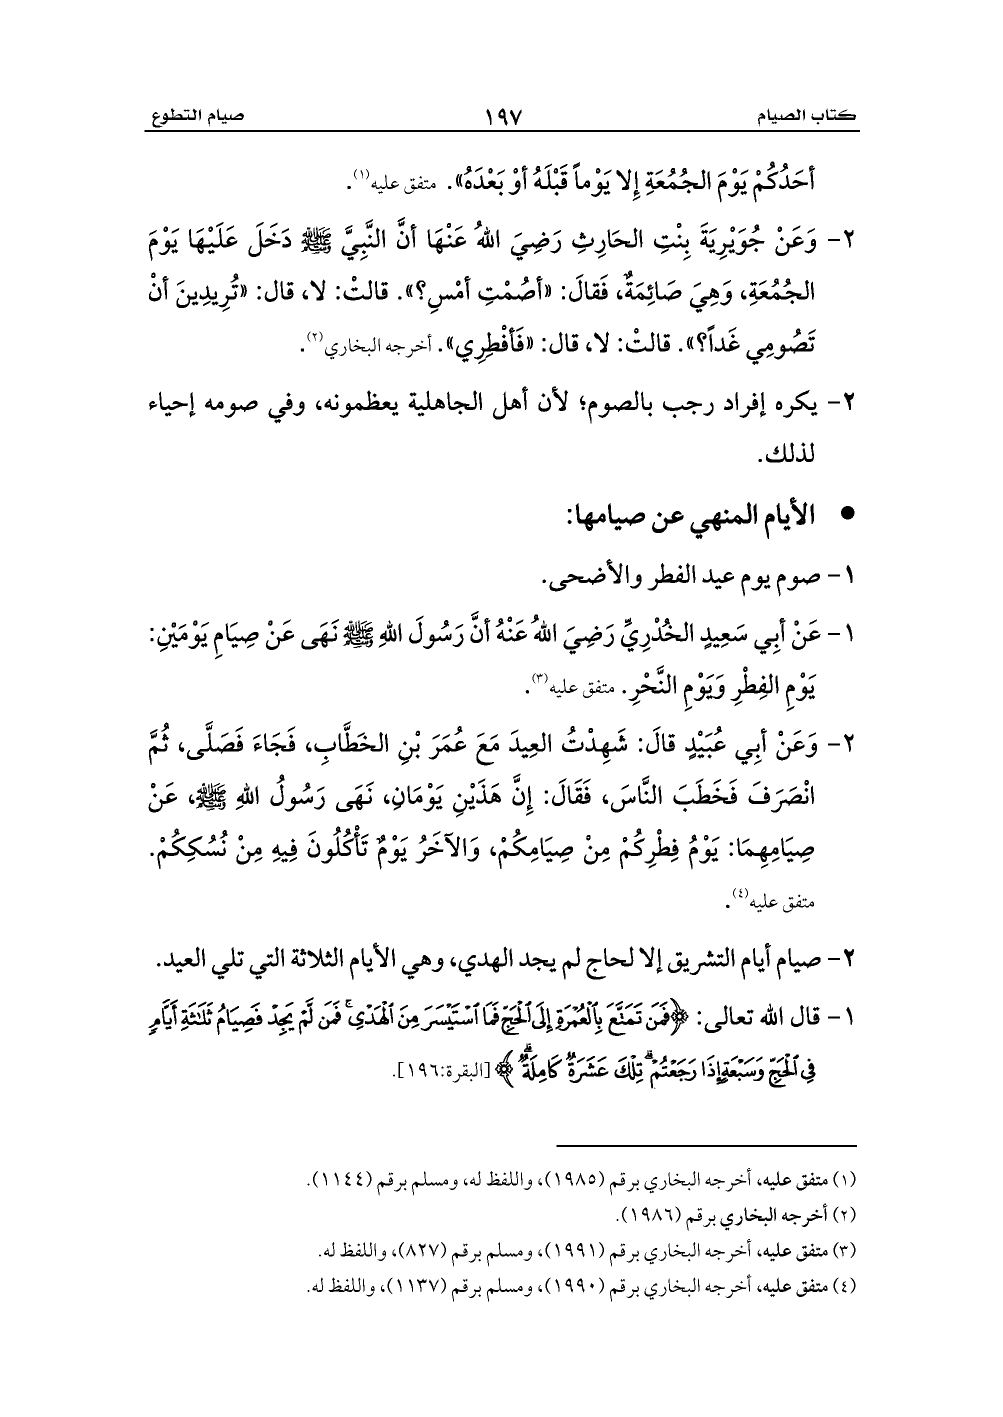 كتاب الصيام ١٩٧ صيام التطوع
أحَدُكُمْ يَوْمَ الجُمُعَةِ إلا يَوْماً قَبْلَهُ أوْ بَعْدَهُ». متفق عليه(١).
٢- وَعَنْ جُوَيْرِيَةَ بِنْتِ الحَارِثِ رَضِيَ اللهُ عَنْهَا أنَّ النَّبِيَّ ﷺ دَخَلَ عَلَيْهَا يَوْمَ
الجُمُعَةِ، وَهِيَ صَائِمَةٌ، فَقالَ: «أصُمْتِ أمْسِ؟». قالتْ: لا، قال: «تُرِيدِينَ أنْ
تَصُومِي غَداً؟». قالتْ: لا، قال: «فَأفْطِرِي». أخرجه البخاري(٢).
٢- يكره إفراد رجب بالصوم؛ لأن أهل الجاهلية يعظمونه، وفي صومه إحياء
لذلك.
● الأيام المنهي عن صيامها:
١- صوم يوم عيد الفطر والأضحى.
١- عَنْ أبِي سَعِيدٍ الخُدْرِيِّ رَضِيَ اللهُ عَنْهُ أنَّ رَسُولَ اللهِ ﷺ نَهَى عَنْ صِيَامِ يَوْمَيْنِ:
يَوْمِ الفِطْرِ وَيَوْمِ النَّحْرِ. متفق عليه(٣).
٢- وَعَنْ أبِي عُبَيْدٍ قالَ: شَهِدْتُ العِيدَ مَعَ عُمَرَ بْنِ الخَطَّابِ، فَجَاءَ فَصَلَّى، ثُمَّ
انْصَرَفَ فَخَطَبَ النَّاسَ، فَقَالَ: إنَّ هَذَيْنِ يَوْمَانِ، نَهَى رَسُولُ اللهِ ﷺ، عَنْ
صِيَامِهِمَا: يَوْمُ فِطْرِكُمْ مِنْ صِيَامِكُمْ، وَالآخَرُ يَوْمٌ تَأْكُلُونَ فِيهِ مِنْ نُسُكِكُمْ.
متفق عليه(٤).
٢- صيام أيام التشريق إلا لحاج لم يجد الهدي، وهي الأيام الثلاثة التي تلي العيد.
١- قال الله تعالى: ﴿فَمَن تَمَتَّعَ بِٱلْعُمْرَةِ إِلَى ٱلْحَجِّ فَمَا ٱسْتَيْسَرَ مِنَ ٱلْهَدْىِ ۚ فَمَن لَّمْ يَجِدْ فَصِيَامُ ثَلَٰثَةِ أَيَّامٍ
فِى ٱلْحَجِّ وَسَبْعَةٍ إِذَا رَجَعْتُمْ ۗ تِلْكَ عَشَرَةٌ كَامِلَةٌ ۗ﴾ [البقرة:١٩٦].
(١) متفق عليه، أخرجه البخاري برقم (١٩٨٥)، واللفظ له، ومسلم برقم (١١٤٤).
(٢) أخرجه البخاري برقم (١٩٨٦).
(٣) متفق عليه، أخرجه البخاري برقم (١٩٩١)، ومسلم برقم (٨٢٧)، واللفظ له.
(٤) متفق عليه، أخرجه البخاري برقم (١٩٩٠)، ومسلم برقم (١١٣٧)، واللفظ له.